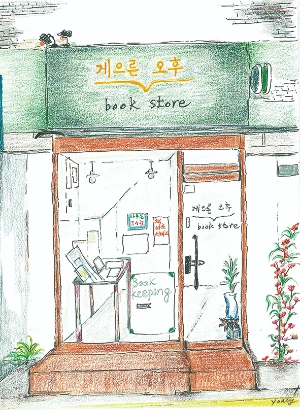 게으른 오후
book store
게으른 오후
book store
Book
keeping